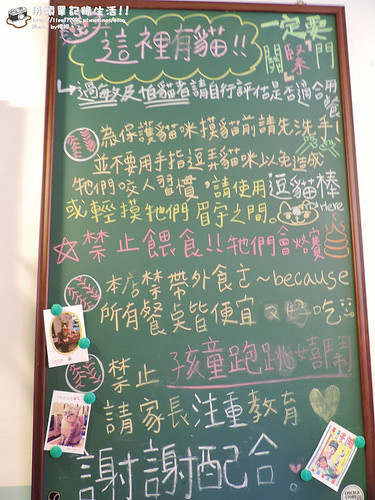 這裡有貓!!
一定要
關緊門
過敏及怕貓者請自行評估是否適合用餐
為保護貓咪摸貓前請先洗手!
並不要用手指逗弄貓咪以免造成
牠們咬人習慣,請使用逗貓棒
Here
或輕摸牠們眉宇之間。
禁止餵食!!牠們會烙賽
本店禁帶外食~because
所有餐點皆便宜又好吃
禁止孩童跑跳嬉鬧
請家長注重教育
謝謝配合。